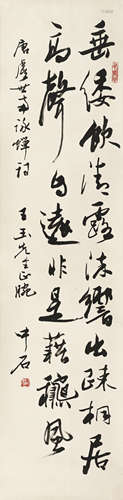 垂緌飲清露流響出疎桐居
高聲自遠非是藉龝風
唐虞世南詠蟬詩
王玉先生正腕
中石